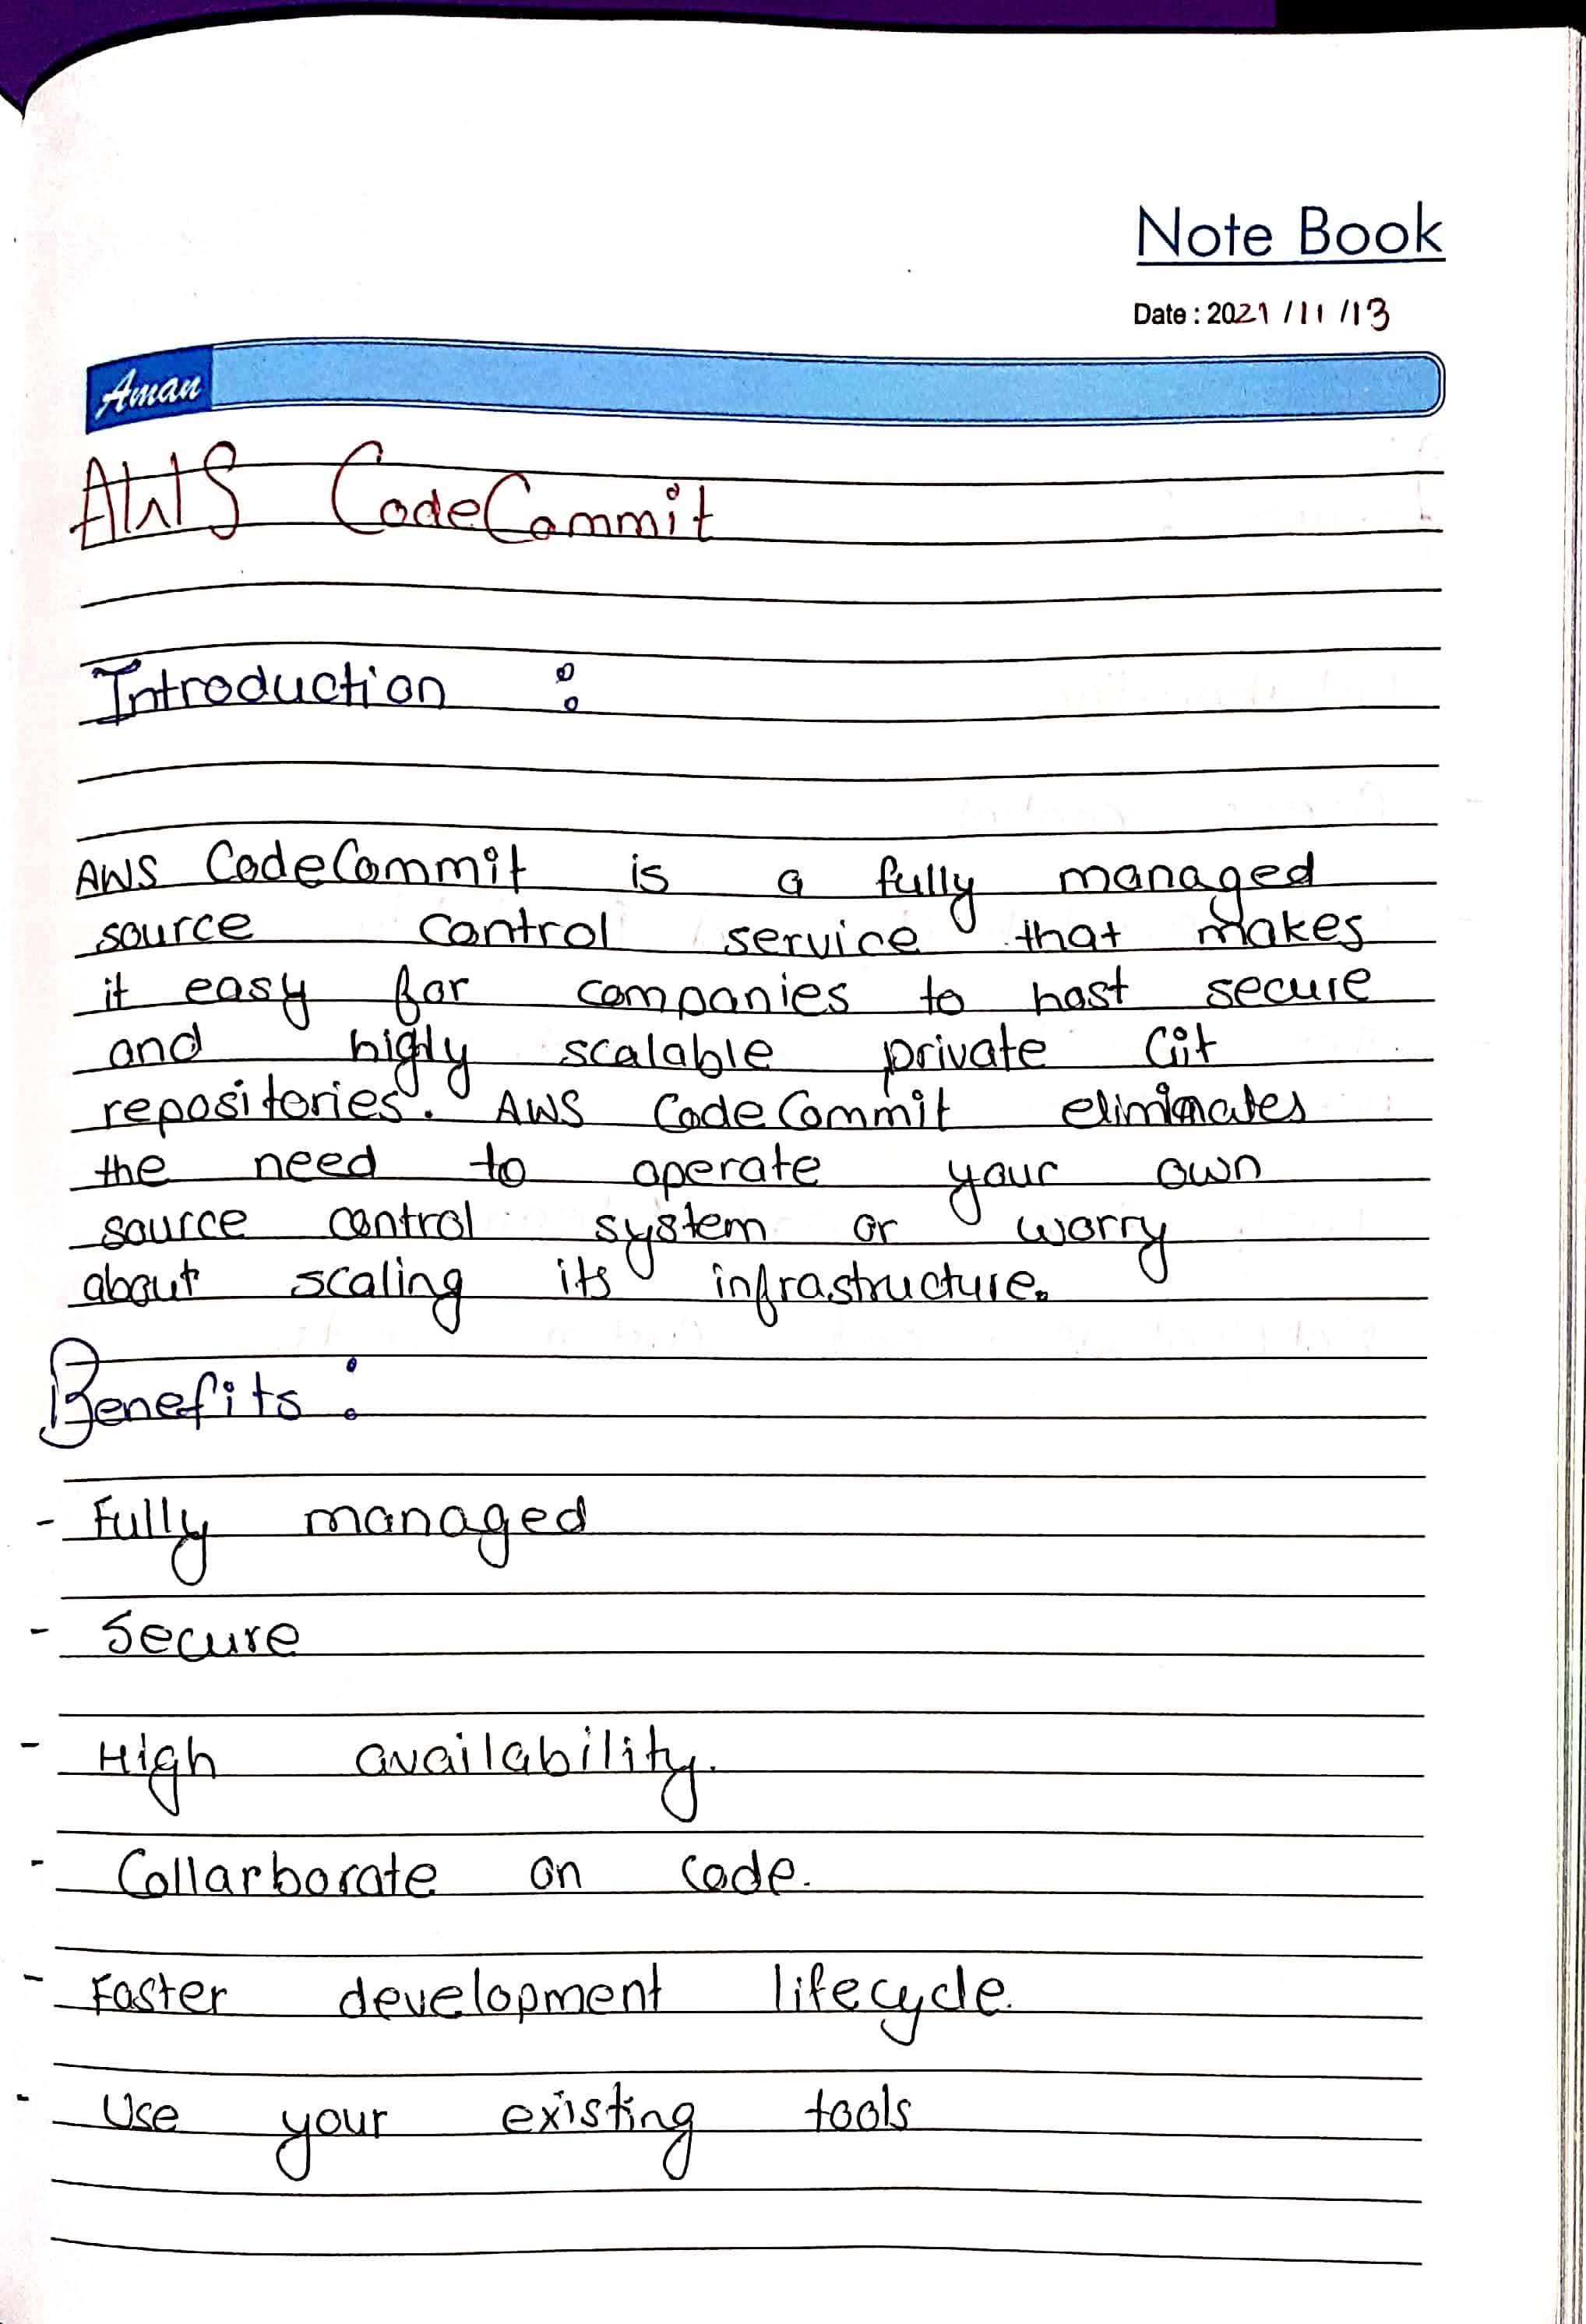 Note Book
Date : 2021 /11 /13
Aman
AWS CodeCommit
Introduction :
AWS CodeCommit is a fully managed
source control service that makes
it easy for companies to host secure
and higly scalable private Git
repositories. AWS CodeCommit eliminates
the need to operate your own
source control system or worry
about scaling its infrastructure.
Benefits :
- Fully managed
- Secure
- High availability.
- Collarborate on code.
- Faster development lifecycle.
- Use your existing tools